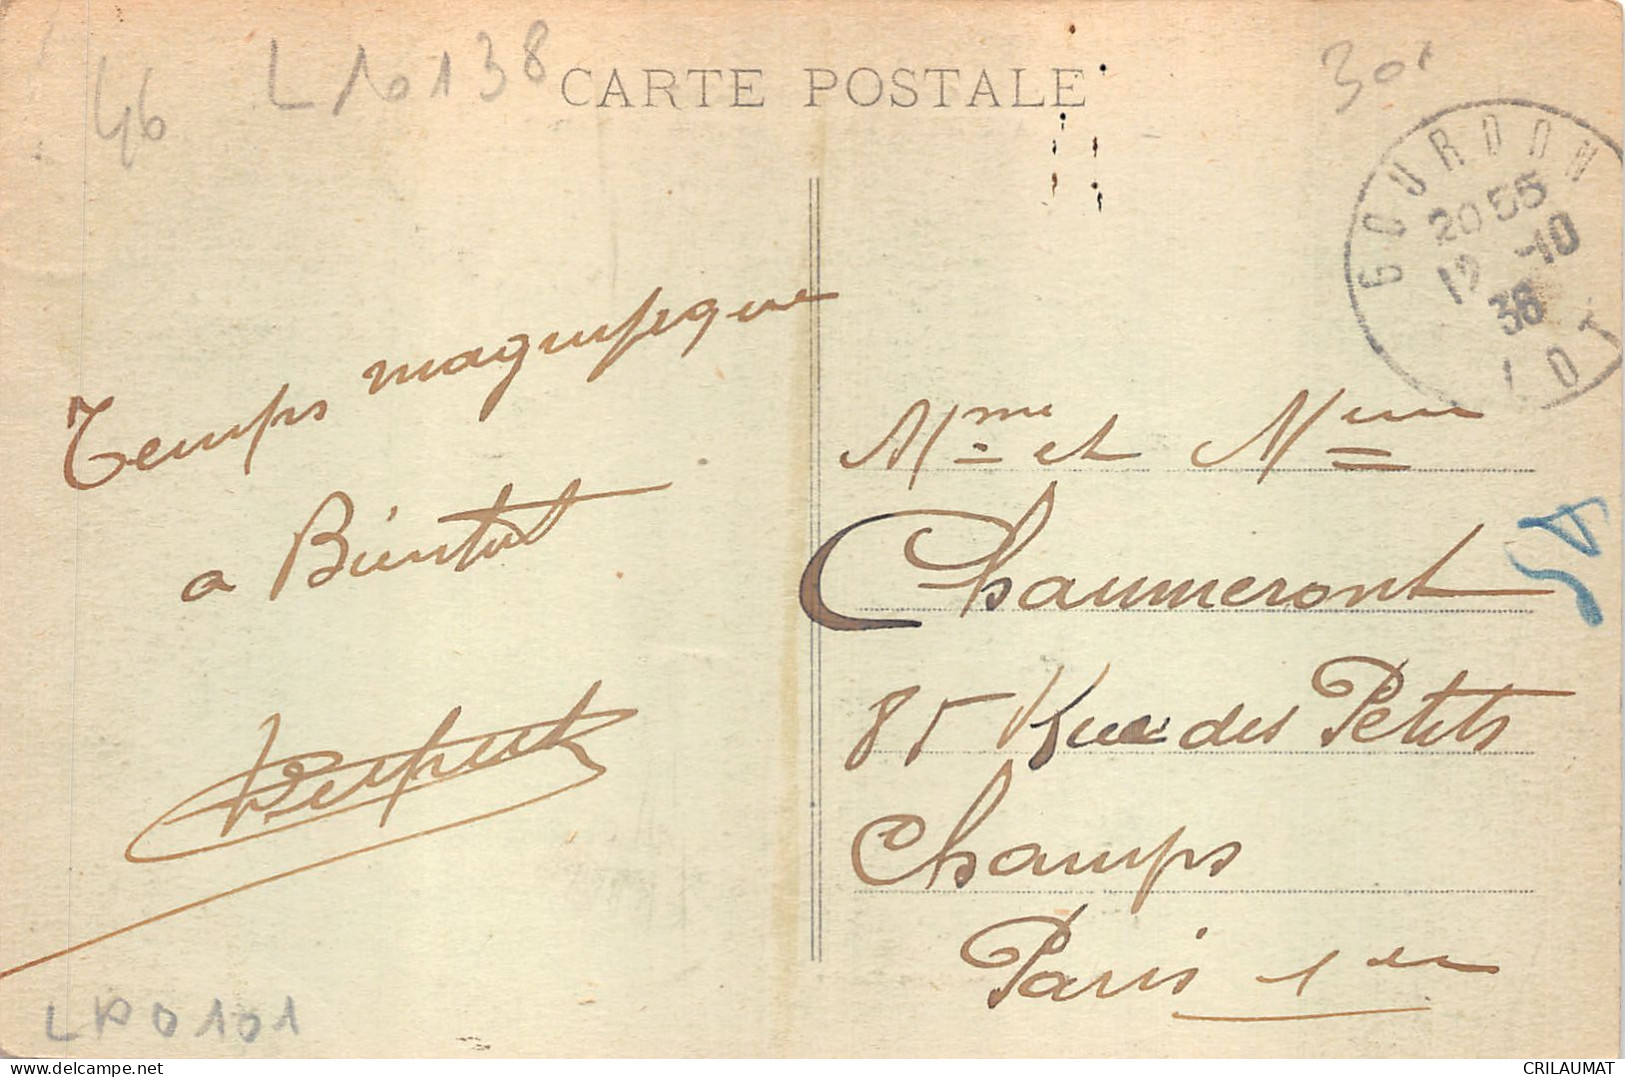 46
L10138
CARTE POSTALE
30
GOURDON
20 55
12 -10
38
LOT
Temps magnifique
a Bientot
Mme et Mlle
Chaumeront
85 Rue des Petits
Champs
Paris 1er
delcampe.net
CRILAUMAT